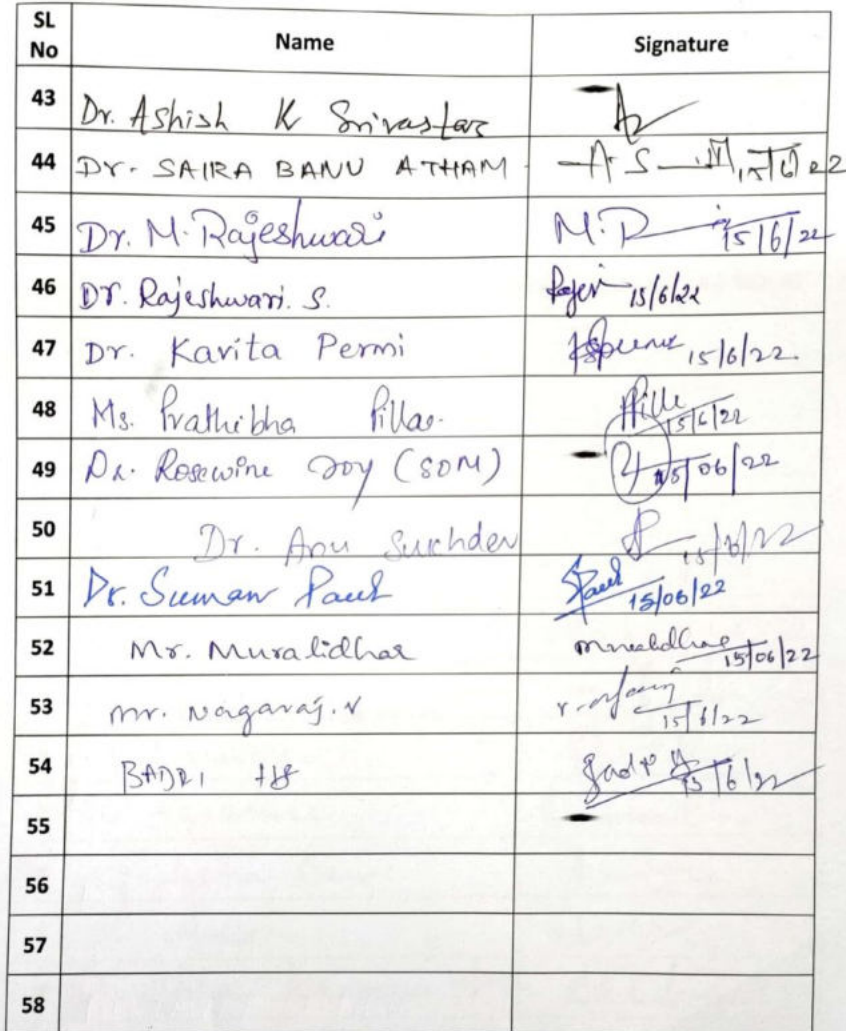 SL No Name Signature
43 Dr. Ashish K Srivastav
44 Dr. SAIRA BANU ATHAM 15/6/22
45 Dr. M. Rajeshwari M.R 15/6/22
46 Dr. Rajeshwari. S. 15/6/22
47 Dr. Kavita Permi 15/6/22.
48 Ms. Prathibha Pillai. 15/6/22
49 Dr. Rosewine Joy (SOM) 15/06/22
50 Dr. Anu Sukhdev 15/6/22
51 Dr. Suman Paul Paul 15/06/22
52 Mr. Muralidhar 15/06/22
53 mr. Nagaraj. V 15/6/22
54 BADRI 15/6/22
55
56
57
58